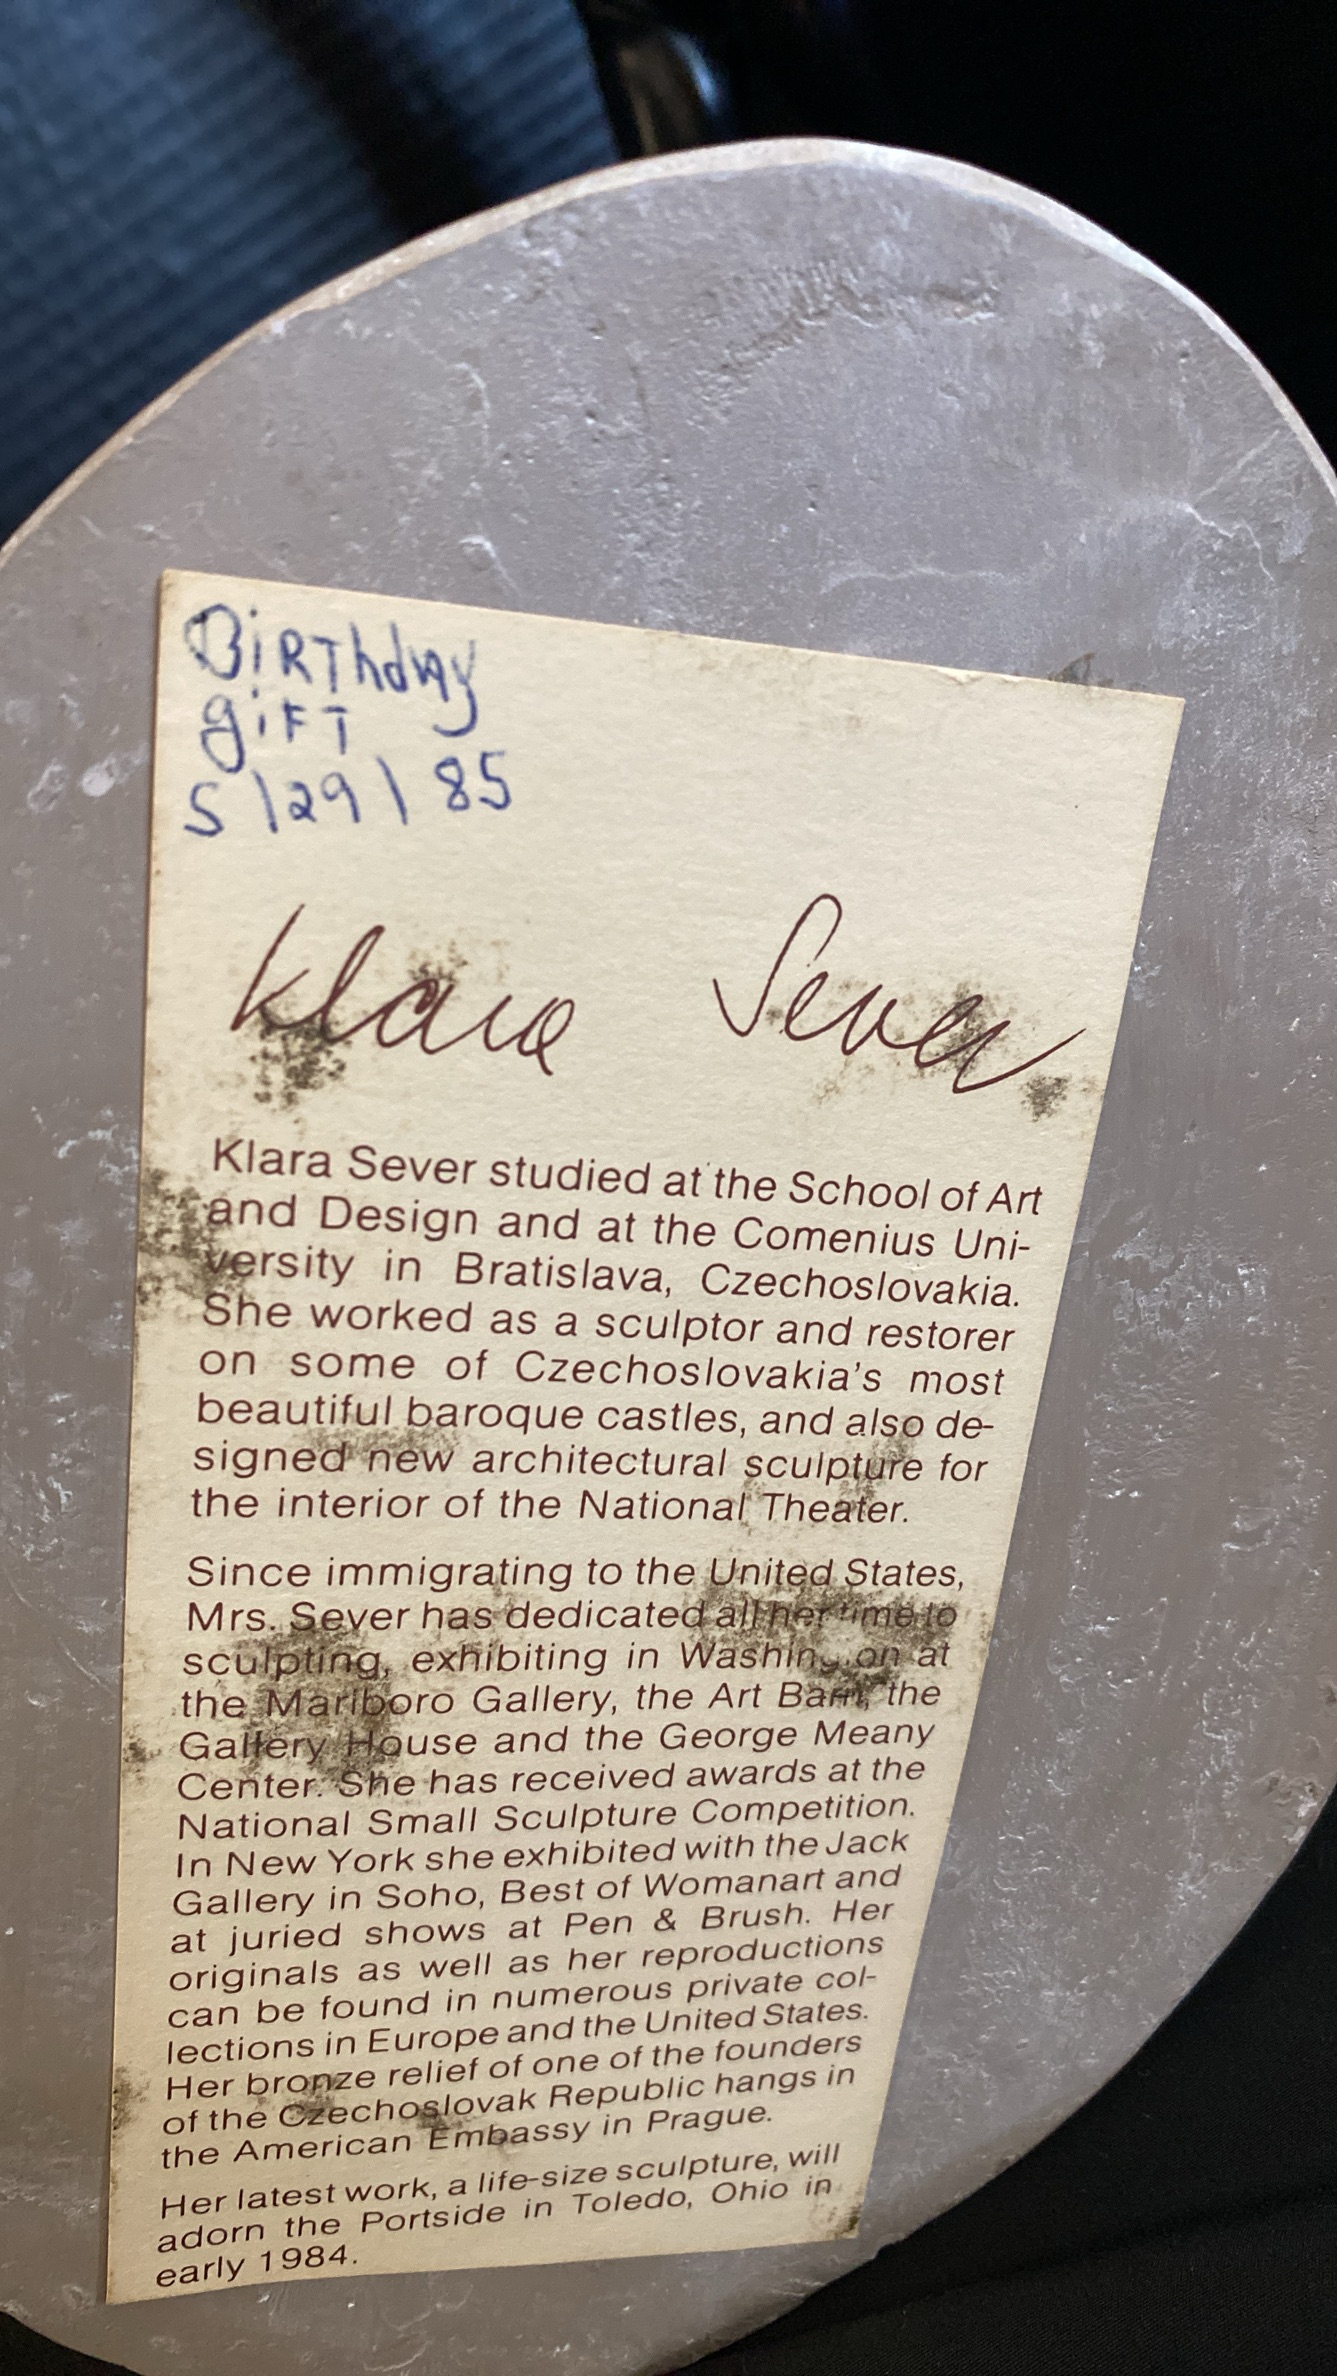 BiRThday
giFT
5/29/85
Klara Sever
Klara Sever studied at the School of Art
and Design and at the Comenius Uni-
versity in Bratislava, Czechoslovakia.
She worked as a sculptor and restorer
on some of Czechoslovakia's most
beautiful baroque castles, and also de-
signed new architectural sculpture for
the interior of the National Theater.
Since immigrating to the United States,
Mrs. Sever has dedicated all her time to
sculpting, exhibiting in Washington at
the Marlboro Gallery, the Art Barn, the
Gallery House and the George Meany
Center. She has received awards at the
National Small Sculpture Competition.
In New York she exhibited with the Jack
Gallery in Soho, Best of Womanart and
at juried shows at Pen & Brush. Her
originals as well as her reproductions
can be found in numerous private col-
lections in Europe and the United States.
Her bronze relief of one of the founders
of the Czechoslovak Republic hangs in
the American Embassy in Prague.
Her latest work, a life-size sculpture, will
adorn the Portside in Toledo, Ohio in
early 1984.